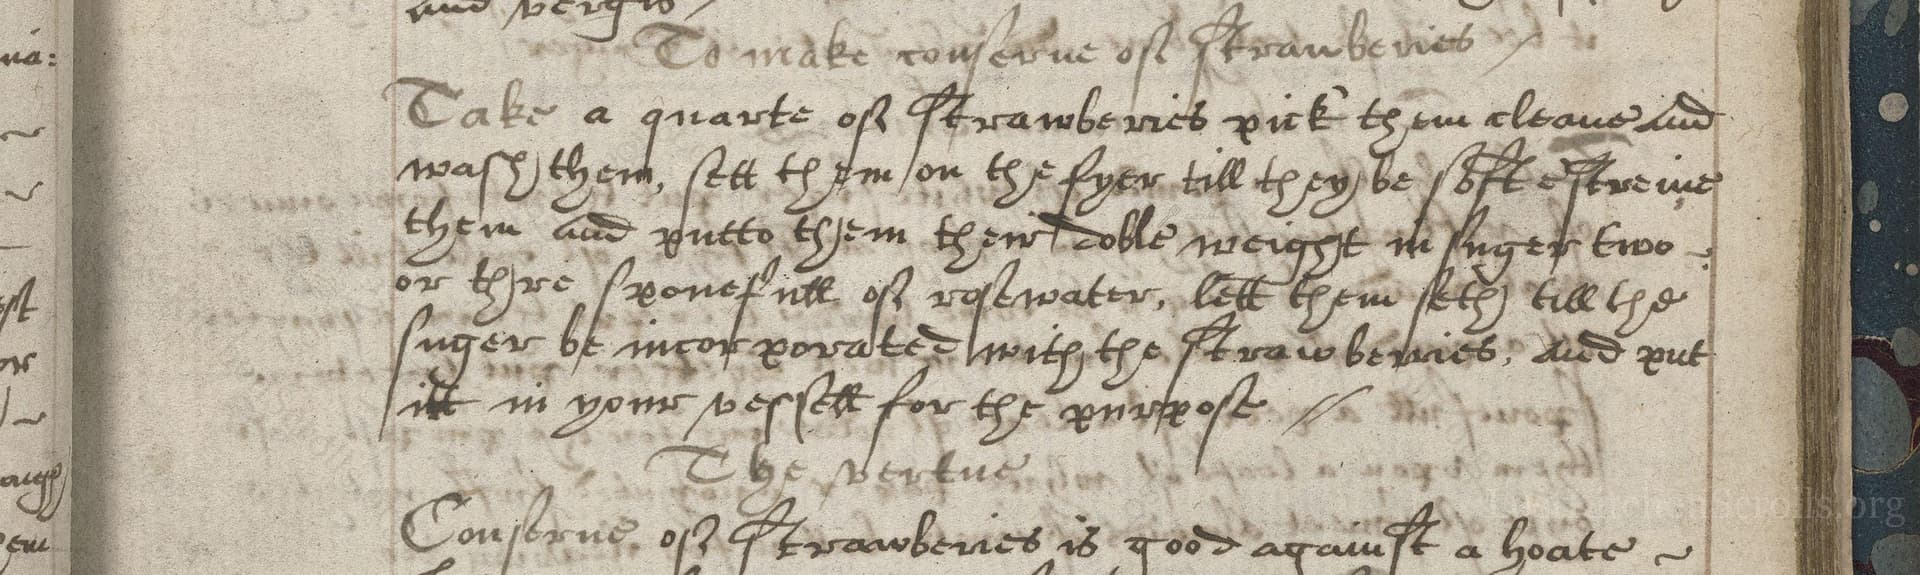 and vergis
To make conserve of strawberies
Take a quarte of strawberies pick them cleane and
wash them, sett them on the fyer till they be soft streine
them and putto them their doble weight in suger two
or thre sponefull of rosewater, lett them seth till the
suger be incorporated with the strawberies, and put
itt in your vessell for the purpose
The vertue
Conserve of strawberies is good against a hoate